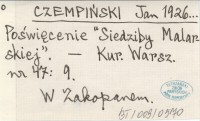 CZEMPIŃSKI Jan 1926...
Poświęcenie "Siedziby Malar-
skiej". — Kur. Warsz.
nr 47: 9.
W Zakopanem.